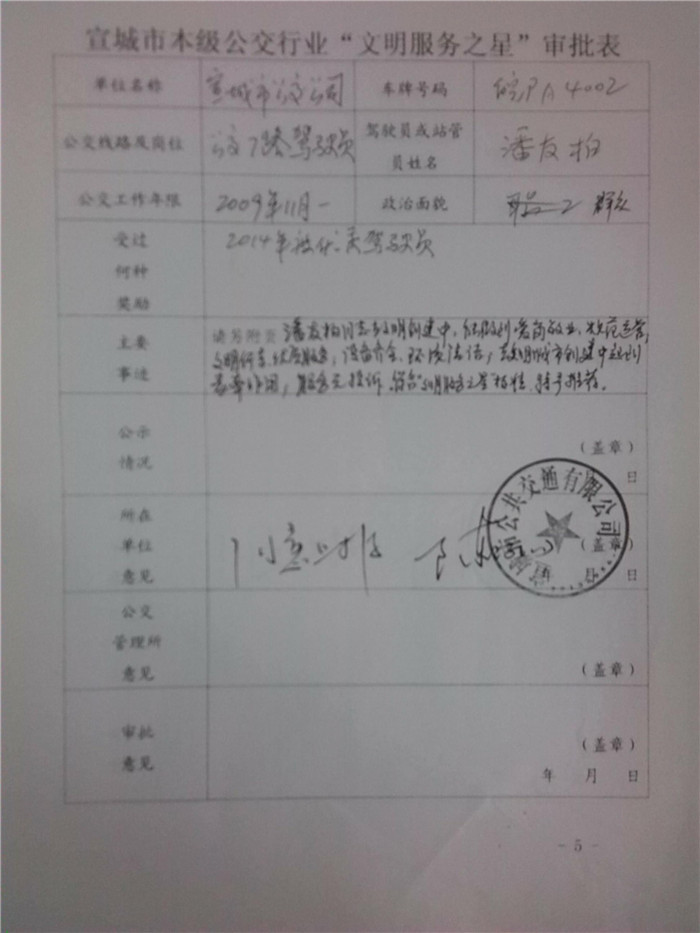 宣城市本级公交行业“文明服务之星”审批表
单位名称 宣城市公交公司 车牌号码 皖PA4002
公交线路及岗位 公交7路驾驶员 驾驶员或站管员姓名 潘友柏
公交工作年限 2009年11月- 政治面貌 群众
受过
何种
奖励
2014年被优秀驾驶员
主要
事迹
请另附页 潘友柏同志在文明创建中,能做到爱岗敬业,规范运营,
文明行车,优质服务,
公示
情况
(盖章)
日
所在
单位
意见
同意上报
公共交通有限公司
(盖章)
日
公交
管理所
意见
(盖章)
审批
意见
(盖章)
年 月 日
- 5 -